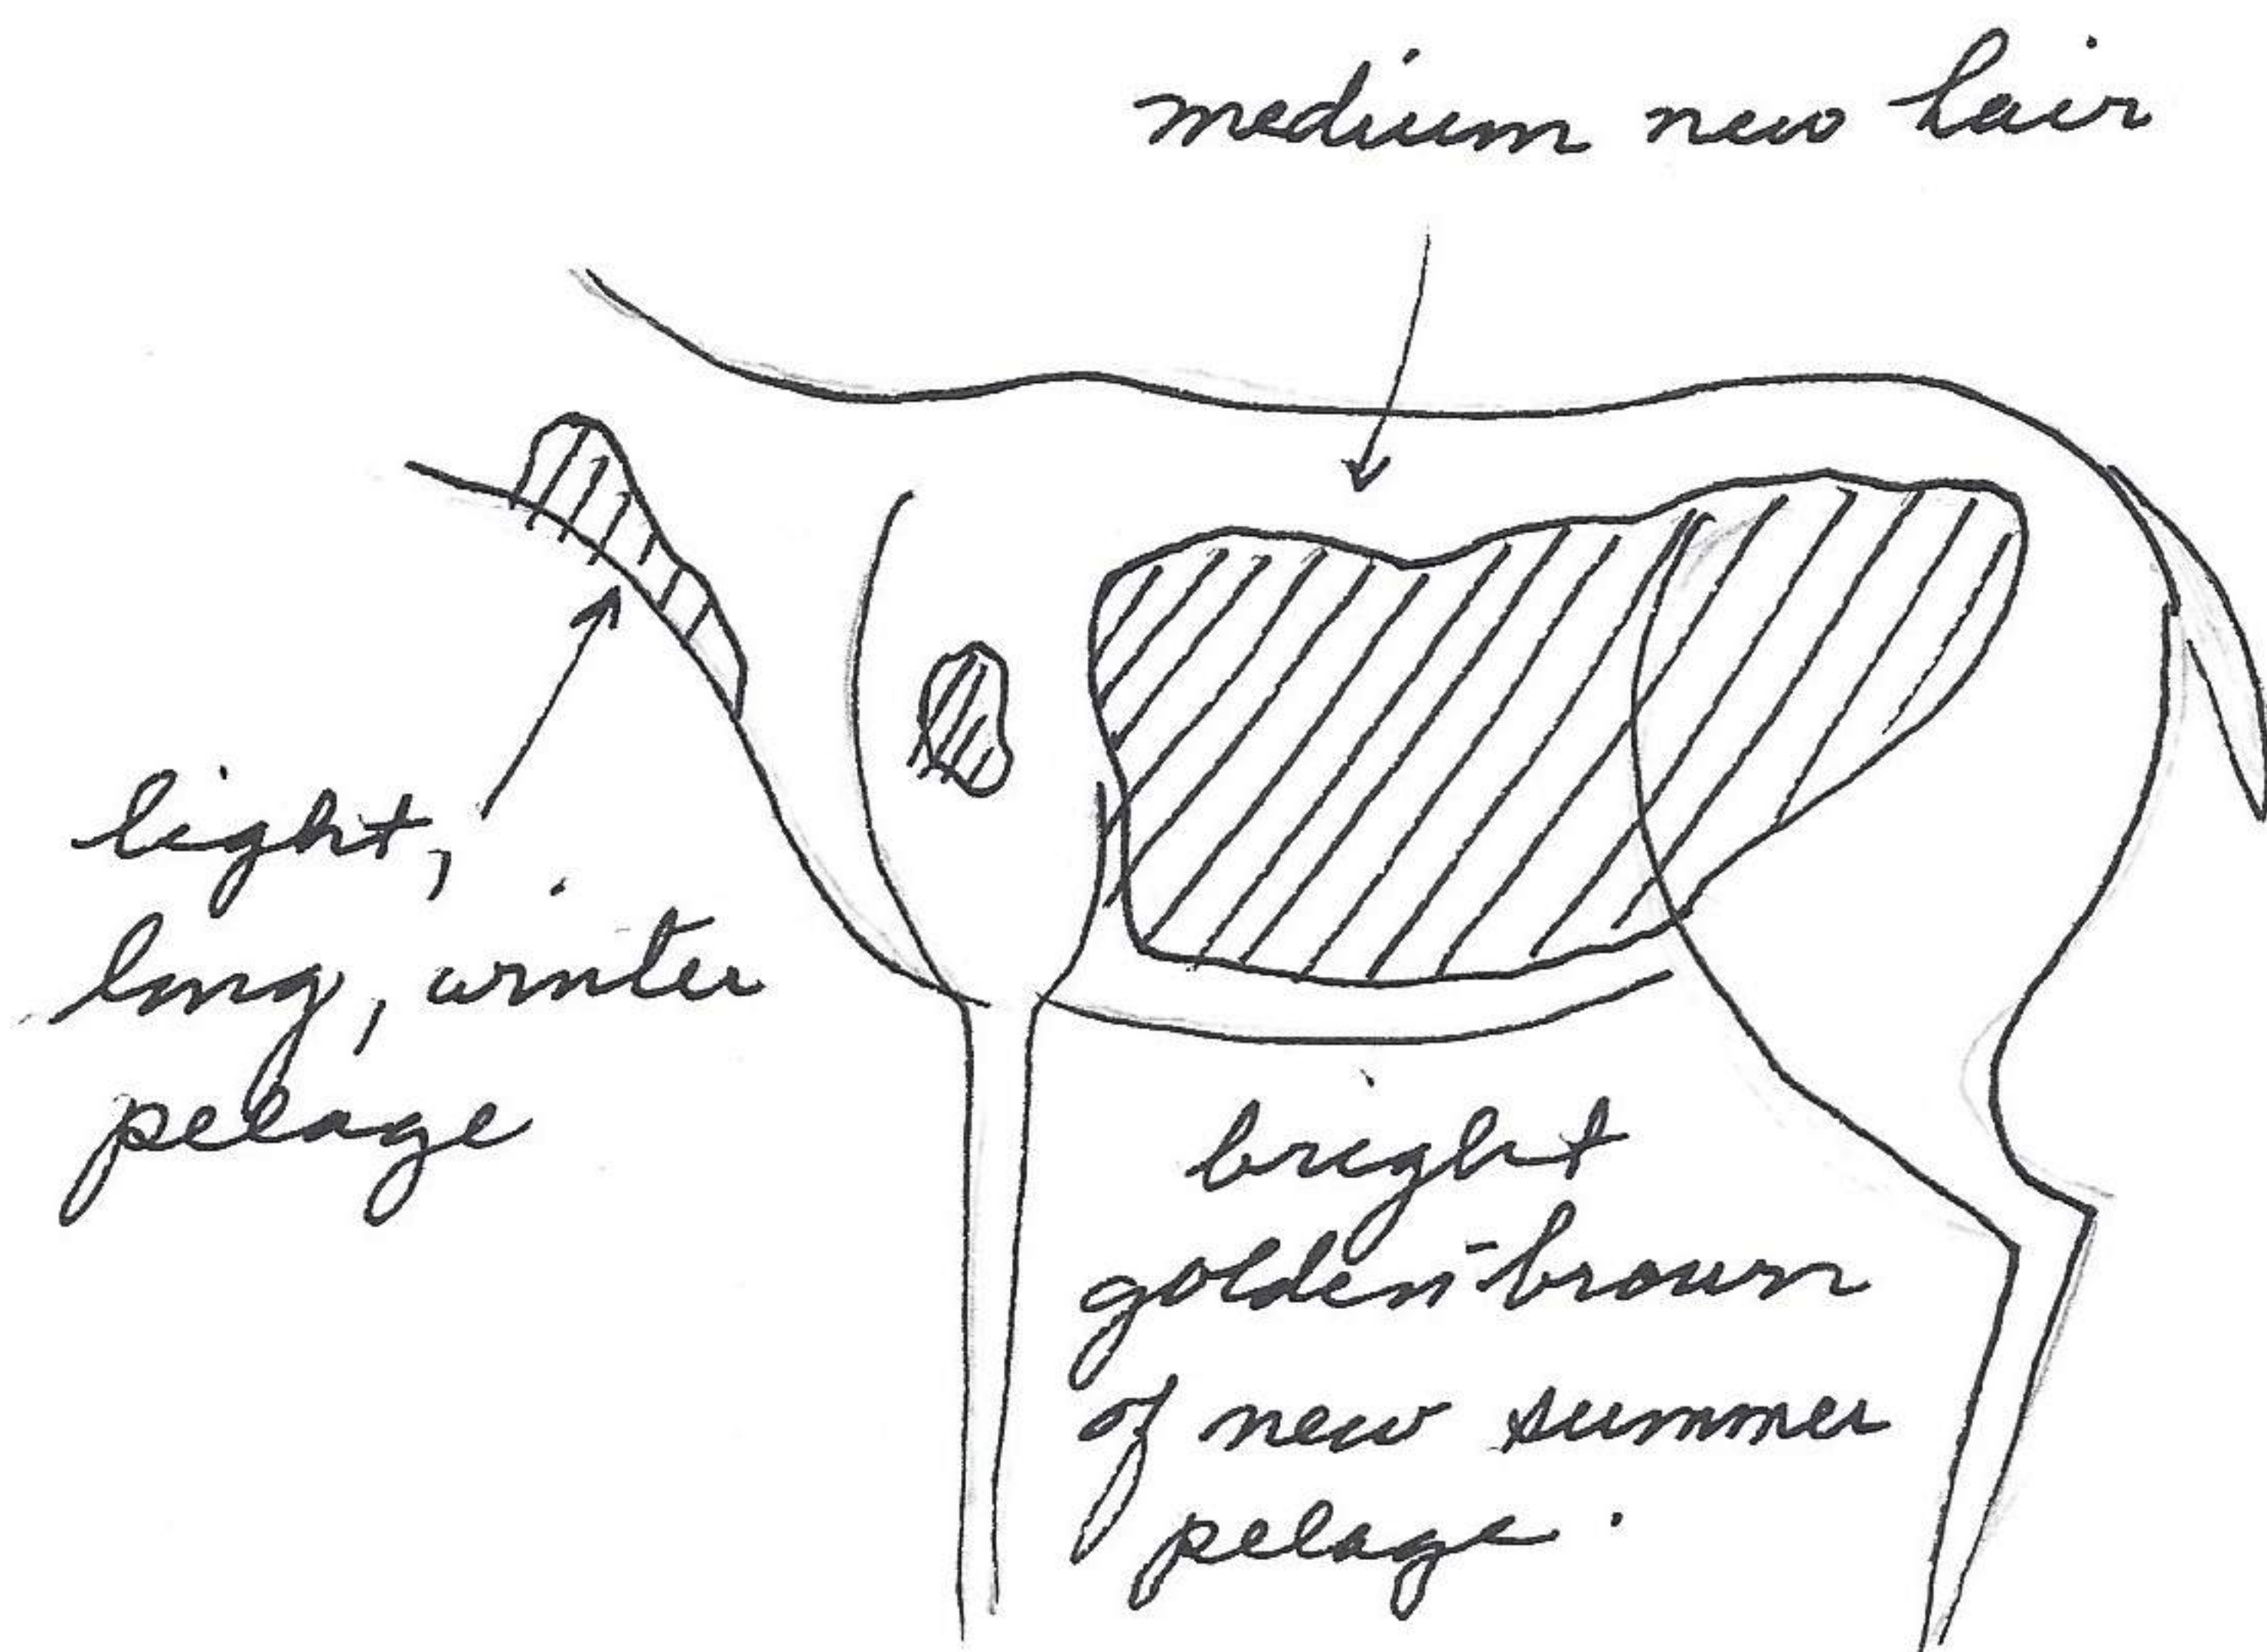 medium new hair
light,
long, winter
pelage
bright
golden-brown
of new summer
pelage.